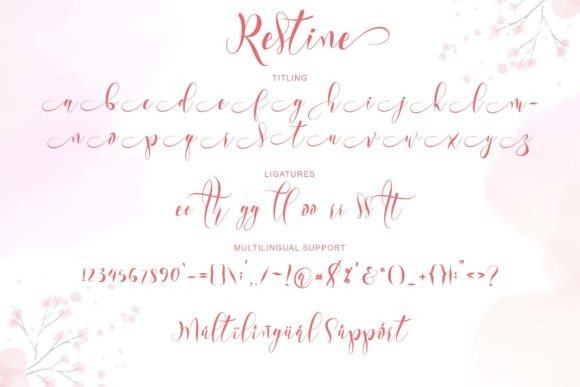 Restine
TITLING
a b c d e f g h i j k l m -
n o p q r s t u v w x y z
LIGATURES
ee th gg ll oo rr ss tt
MULTILINGUAL SUPPORT
1234567890`-=[]\;',./~!@#$%^&*()_+{}|:"<>?
Multilingual Support